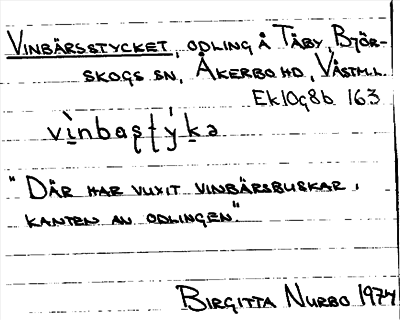 VINBÄRSSTYCKET, ODLING Å TÄBY, BJÖR-
SKOGS SN, ÅKERBO HD, VÄSTM.L.
Ek10g8b 163
vìnbaʂʈýkə
"DÄR HAR VUXIT VINBÄRSBUSKAR I
KANTEN AV ODLINGEN."
BIRGITTA NURBO 1974